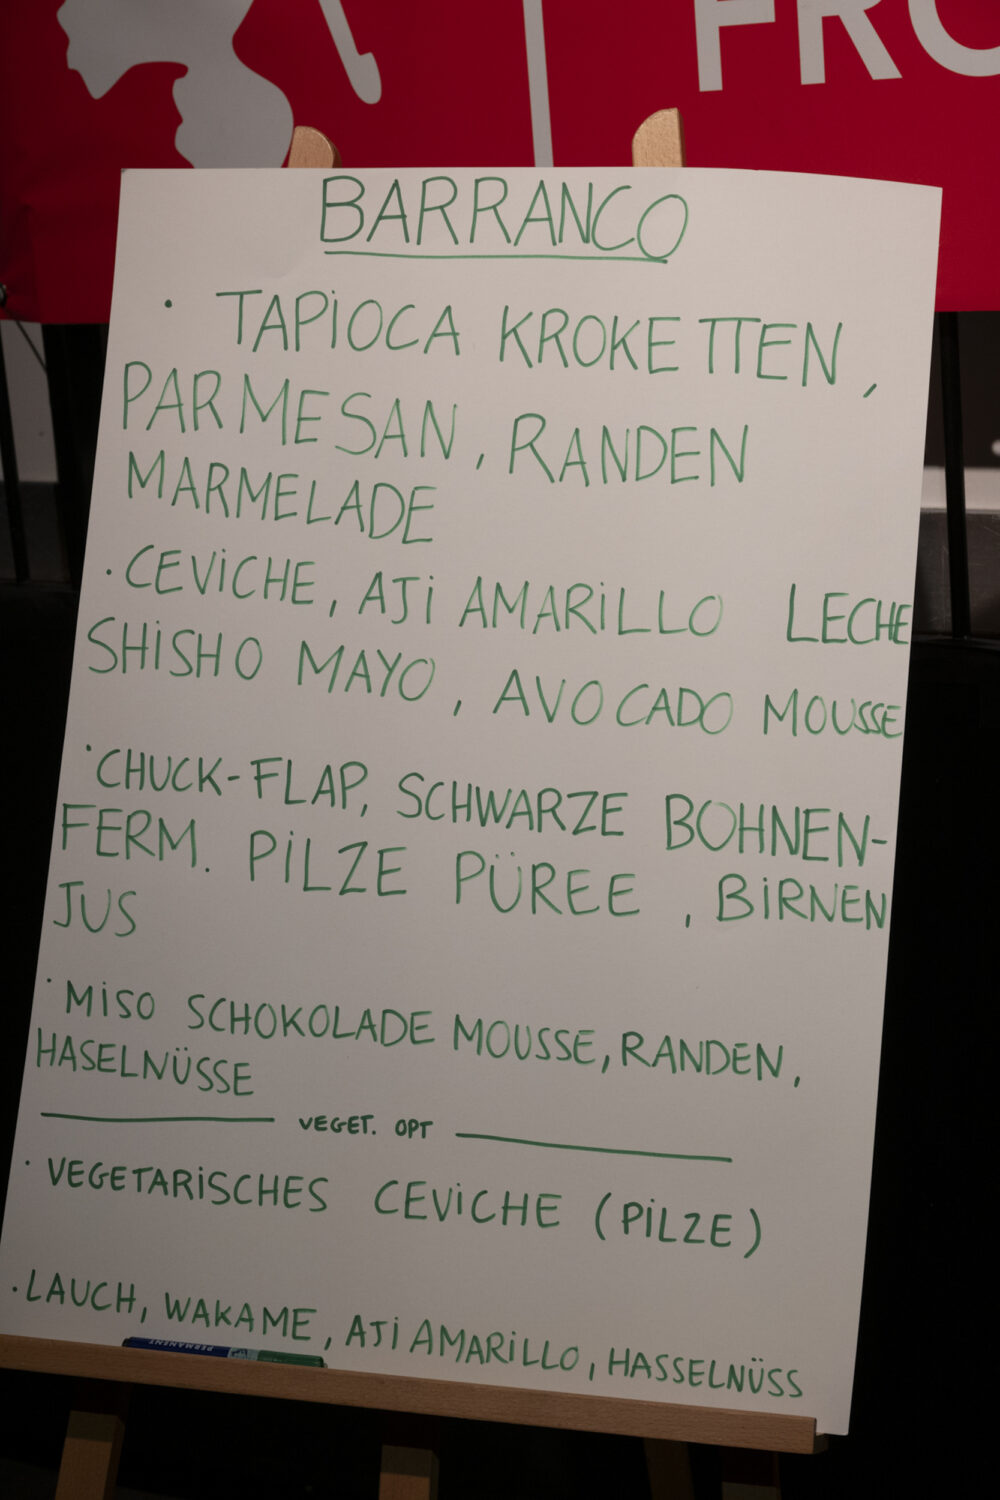 FRO
BARRANCO
· TAPIOCA KROKETTEN,
PARMESAN, RANDEN
MARMELADE
· CEVICHE, AJI AMARILLO LECHE
SHISHO MAYO, AVOCADO MOUSSE
· CHUCK-FLAP, SCHWARZE BOHNEN-
FERM. PILZE PÜREE, BIRNEN
JUS
· MISO SCHOKOLADE MOUSSE, RANDEN,
HASELNÜSSE
VEGET. OPT
· VEGETARISCHES CEVICHE (PILZE)
· LAUCH, WAKAME, AJI AMARILLO, HASSELNÜSS
PERMANENT